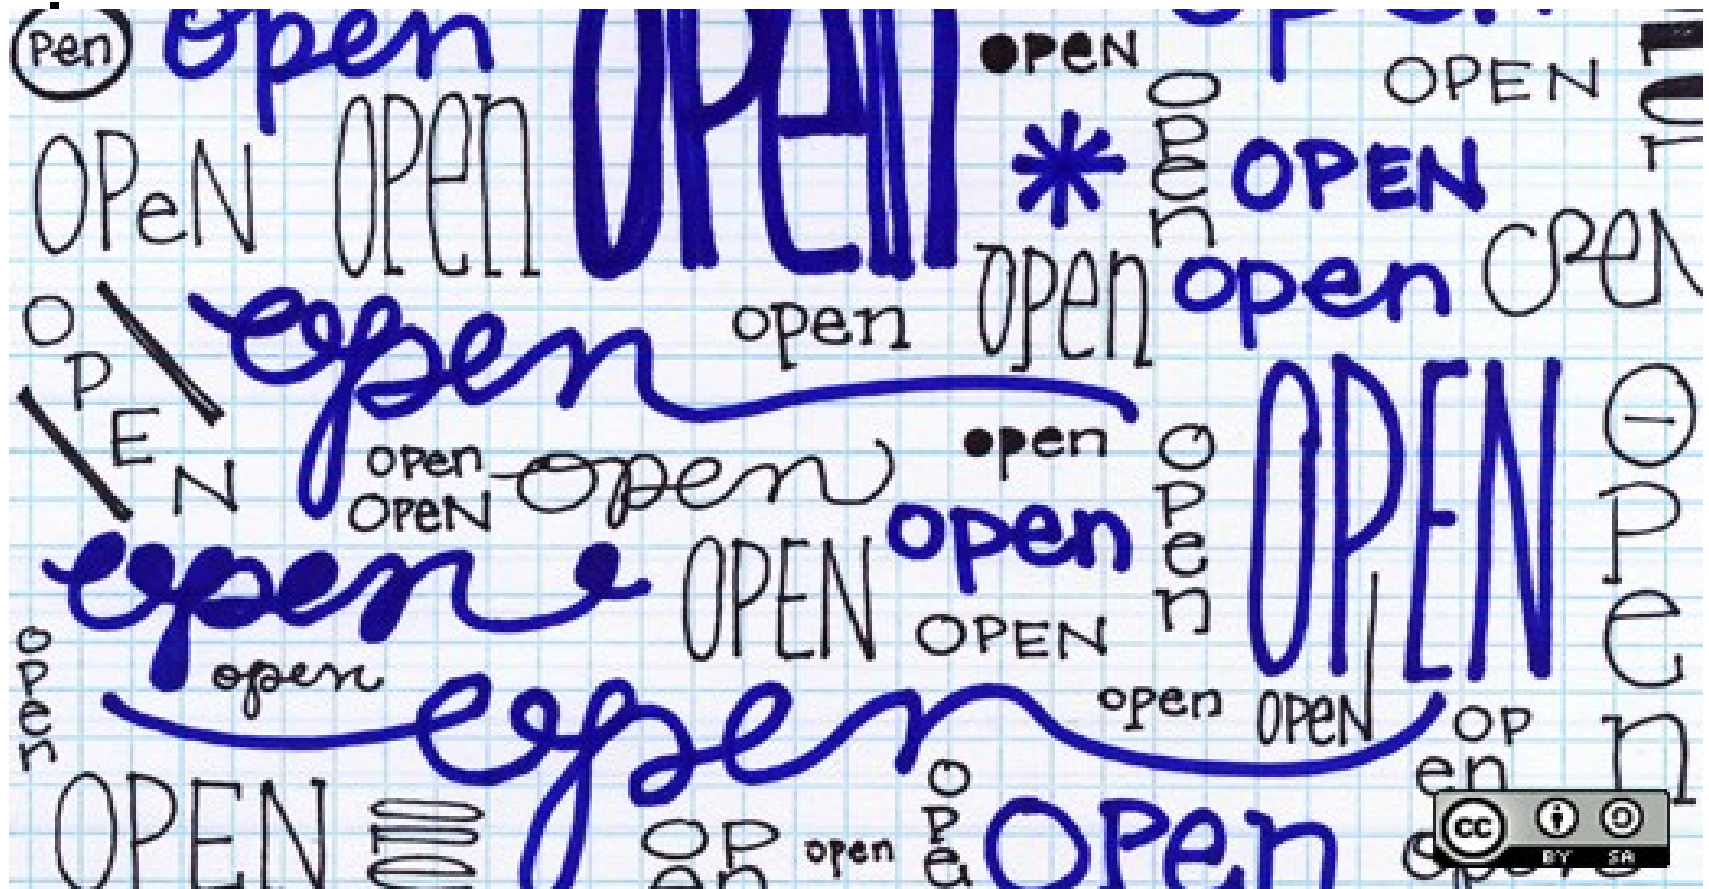 open
open
open
open
OPeN
OPEN
open
OPeN
open
open
OPEN
open
open
open
open
open
OPEN
open
open
open
OPEN
open
OPEN
open
open
OPeN
open
OPEN
open
OPEN
open
open
open
open
open
OPeN
OP
en
open
OPEN
OP
en
open
open
open
cc
BY SA